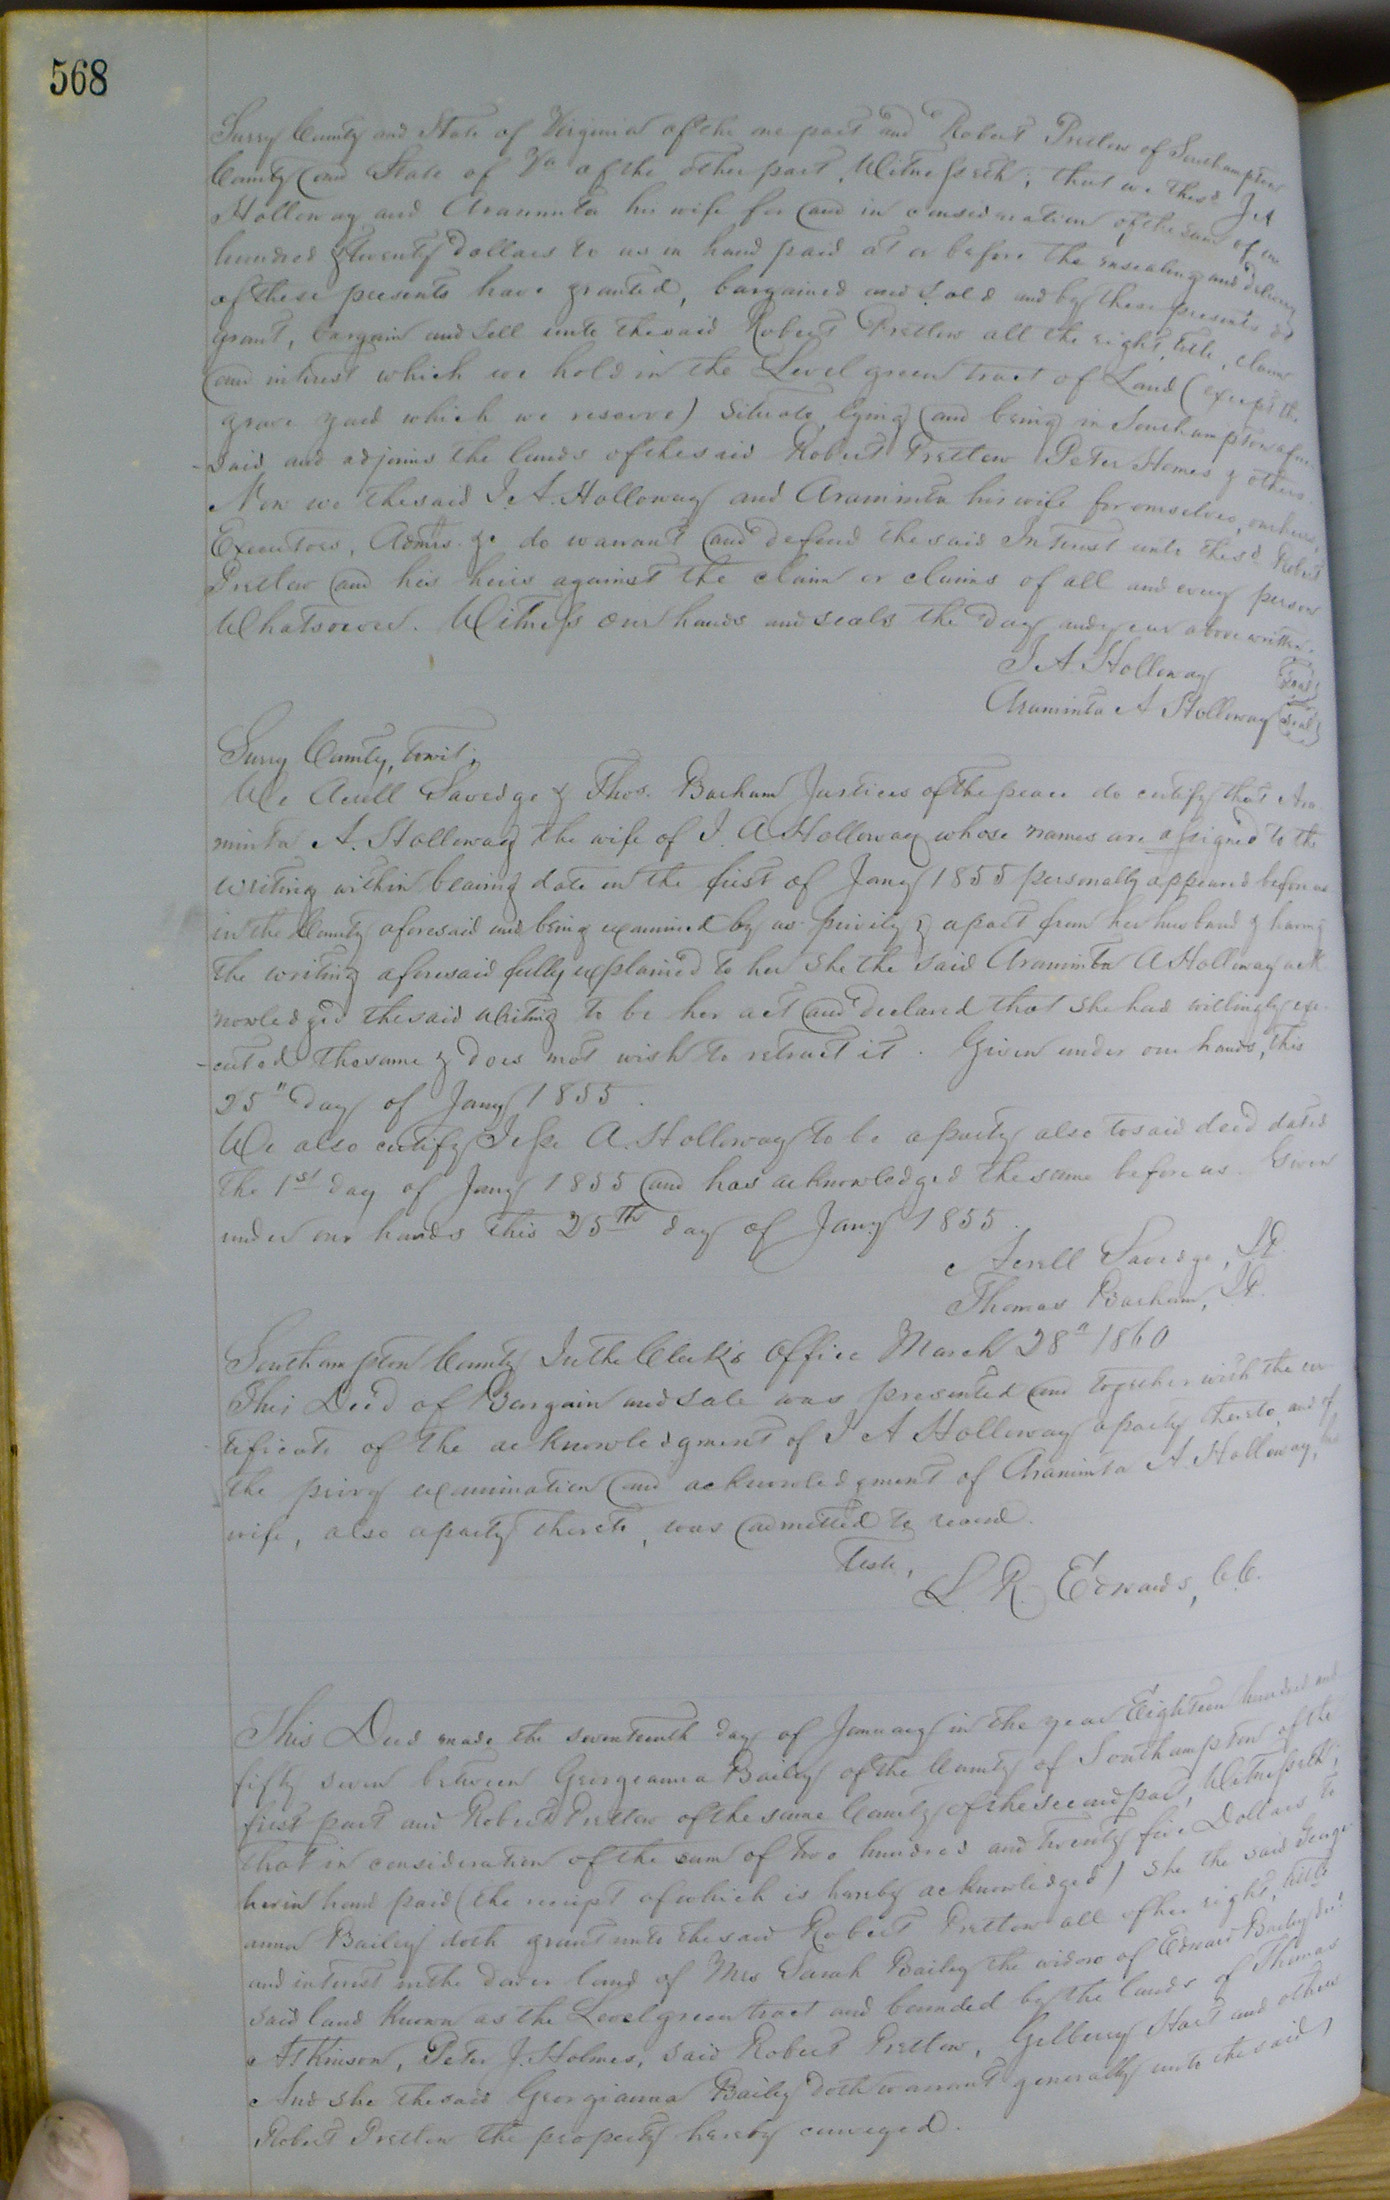 568
Surry County and State of Virginia of the one part and Robert Pretlow of Southampton
County and State of Va of the other part, Witnesseth; that we the sd J A
Holloway and Araminta his wife for and in consideration of the sum of one
hundred & twenty Dollars to us in hand paid at or before the ensealing and delivery
of these presents have granted, bargained and sold and by these presents do
grant, bargain and sell unto the said Robert Pretlow all the right, title, claim
and interest which we hold in the Level green tract of Land (except the
grave yard which we reserve) situate lying and being in Southampton afore
-said and adjoins the lands of the said Robert Pretlow Peter Homes & others.
Now we the said J. A. Holloway and Araminta his wife for ourselves, our heirs,
Executors, Admrs. &c do warrant and defend the said Interest unto the sd Robert
Pretlow and his heirs against the claim or claims of all and every person
Whatsoever. Witness our hands and seals the day and year above written.
J A Holloway Seal
Araminta A Holloway Seal
Surry County, towit;
We Acrell Savedge & Thos. Barham Justices of the peace do certify that Ara
minta A. Holloway the wife of J. A Holloway whose names are assigned to the
writing within bearing date on the first of Jany 1855 personally appeared before us
in the County aforesaid and being examined by us privily & apart from her husband & having
the writing aforesaid fully explained to her she the said Araminta A Holloway ack
nowledged the said Writing to be her act and declared that she had willingly exe-
-cuted the same & does not wish to retract it. Given under our hands, this
25" day of Jany 1855.
We also certify Jesse A. Holloway to be a party also to said deed dated
the 1st day of Jany 1855 and has acknowledged the same before us. Given
under our hands this 25th day of Jany 1855.
Acrell Savedge, J.P.
Thomas Barham, J.P.
Southampton County In the Clerk's Office March 28" 1860
This Deed of Bargain and sale was presented and together with the cer
tificate of the acknowledgment of J A Holloway a party thereto, and of
the privy examination and acknowledgment of Araminta A. Holloway, his
wife, also a party thereto, was admitted to record.
Teste,
L. R. Edwards, C.C.
This Deed made the seventeenth day of January in the year Eighteen hundred and
fifty seven between Georgeanna Bailey of the County of Southampton of the
first part and Robert Pretlow of the same County of the second part, Witnesseth;
that in consideration of the sum of two hundred and twenty five Dollars to
her in hand paid (the receipt of which is hereby acknowledged) she the said George
anna Bailey doth grant unto the said Robert Pretlow all of her right, title
and interest in the dower land of Mrs Sarah Bailey the widow of Edward Bailey decd.
said land known as the Level green tract and bounded by the lands of Thomas
Atkinson, Peter J. Holmes, said Robert Pretlow, Gilberry Hart and others
And she the said Georgianna Bailey doth warrant generally unto the said
Robert Pretlow the property hereby conveyed.